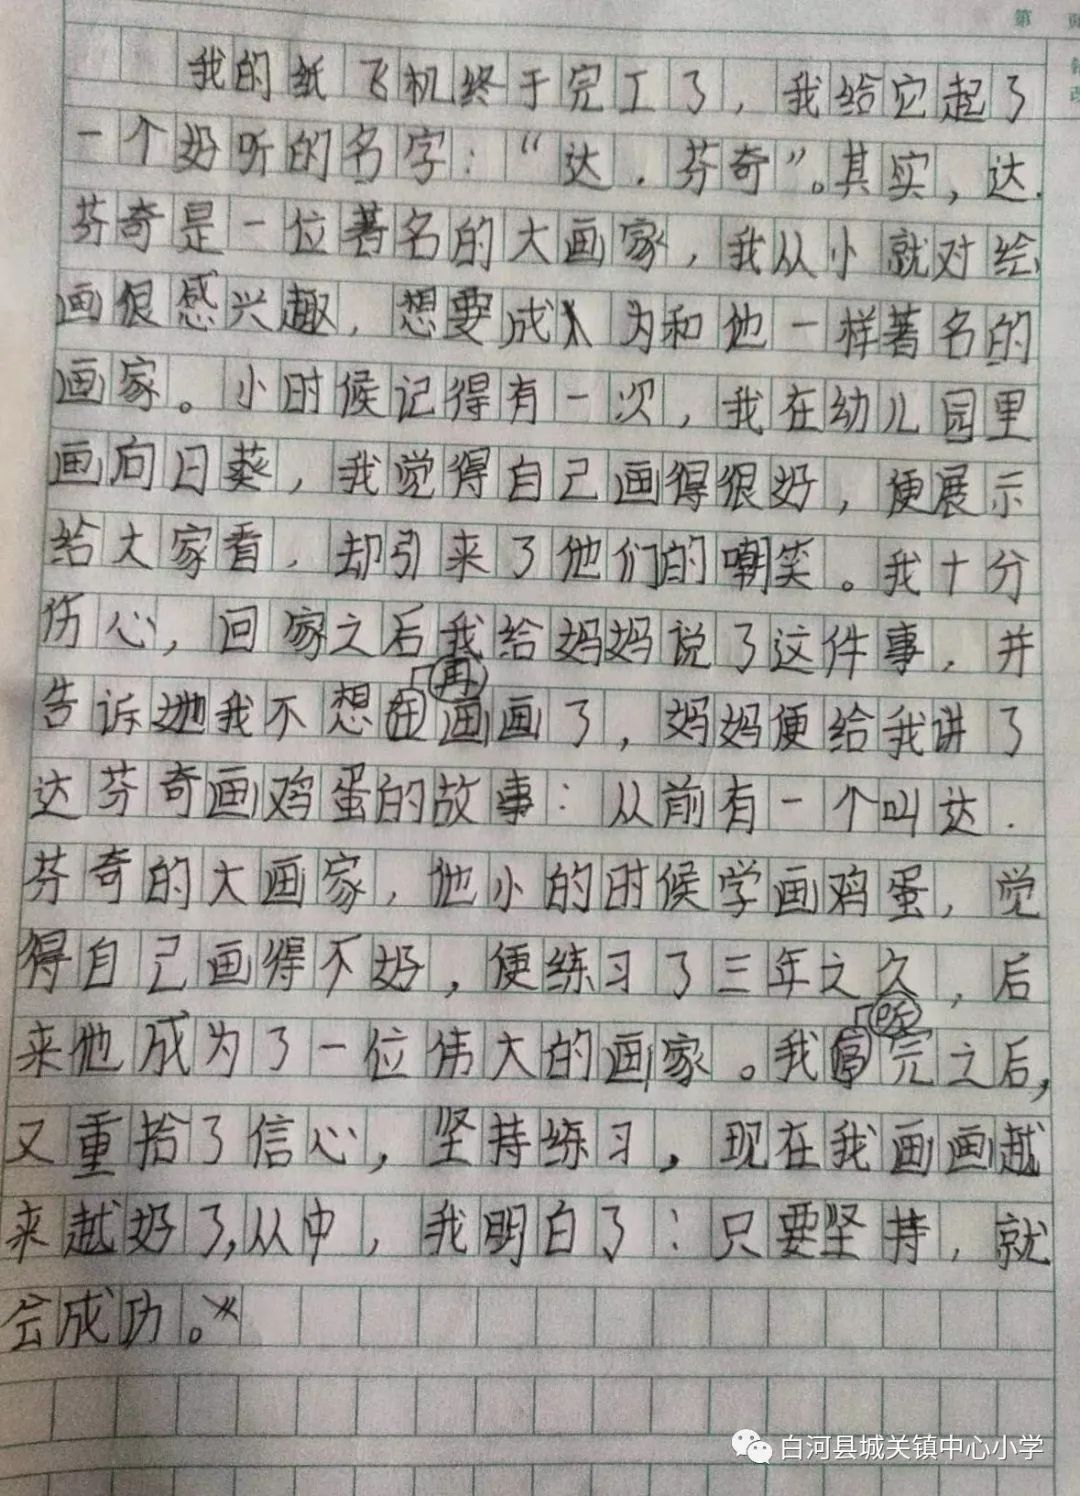 第
我的纸飞机终于完工了，我给它起了
一个好听的名字：“达．芬奇”。其实，达．
芬奇是一位著名的大画家，我从小就对绘
画很感兴趣，想要成为和他一样著名的
画家。小时候记得有一次，我在幼儿园里
画向日葵，我觉得自己画得很好，便展示
给大家看，却引来了他们的嘲笑。我十分
伤心，回家之后我给妈妈说了这件事，并
告诉她我不想再画画了，妈妈便给我讲了
达芬奇画鸡蛋的故事：从前有一个叫达．
芬奇的大画家，他小的时候学画鸡蛋，觉
得自己画得不好，便练习了三年之久，后
来他成为了一位伟大的画家。我听完之后，
又重拾了信心，坚持练习，现在我画画越
来越好了，从中，我明白了：只要坚持，就
会成功。
白河县城关镇中心小学